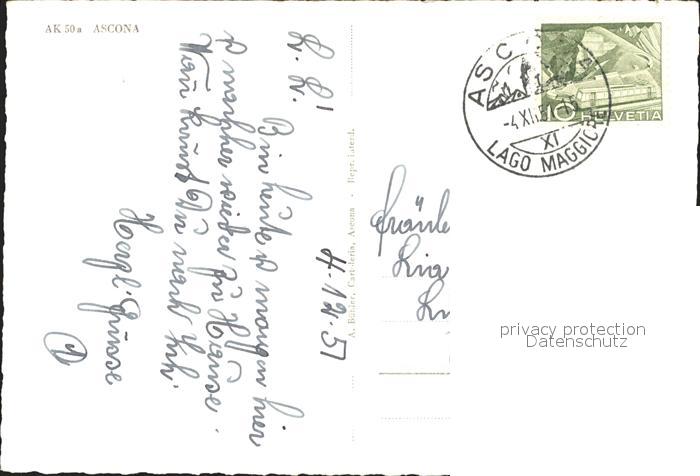 AK 50 a ASCONA
L. L!
Bin heute & morgen hier
& nachher wieder zu Hause.
Dann kommst Du nach
Hrzl. Grüsse
4.12.51
A. Bühler, Cartoleria, Ascona - Repr. interd.
Fräule
Lia
ASC
-4.XII.5
XI
LAGO MAGGIORE
10 HELVETIA
privacy protection
Datenschutz